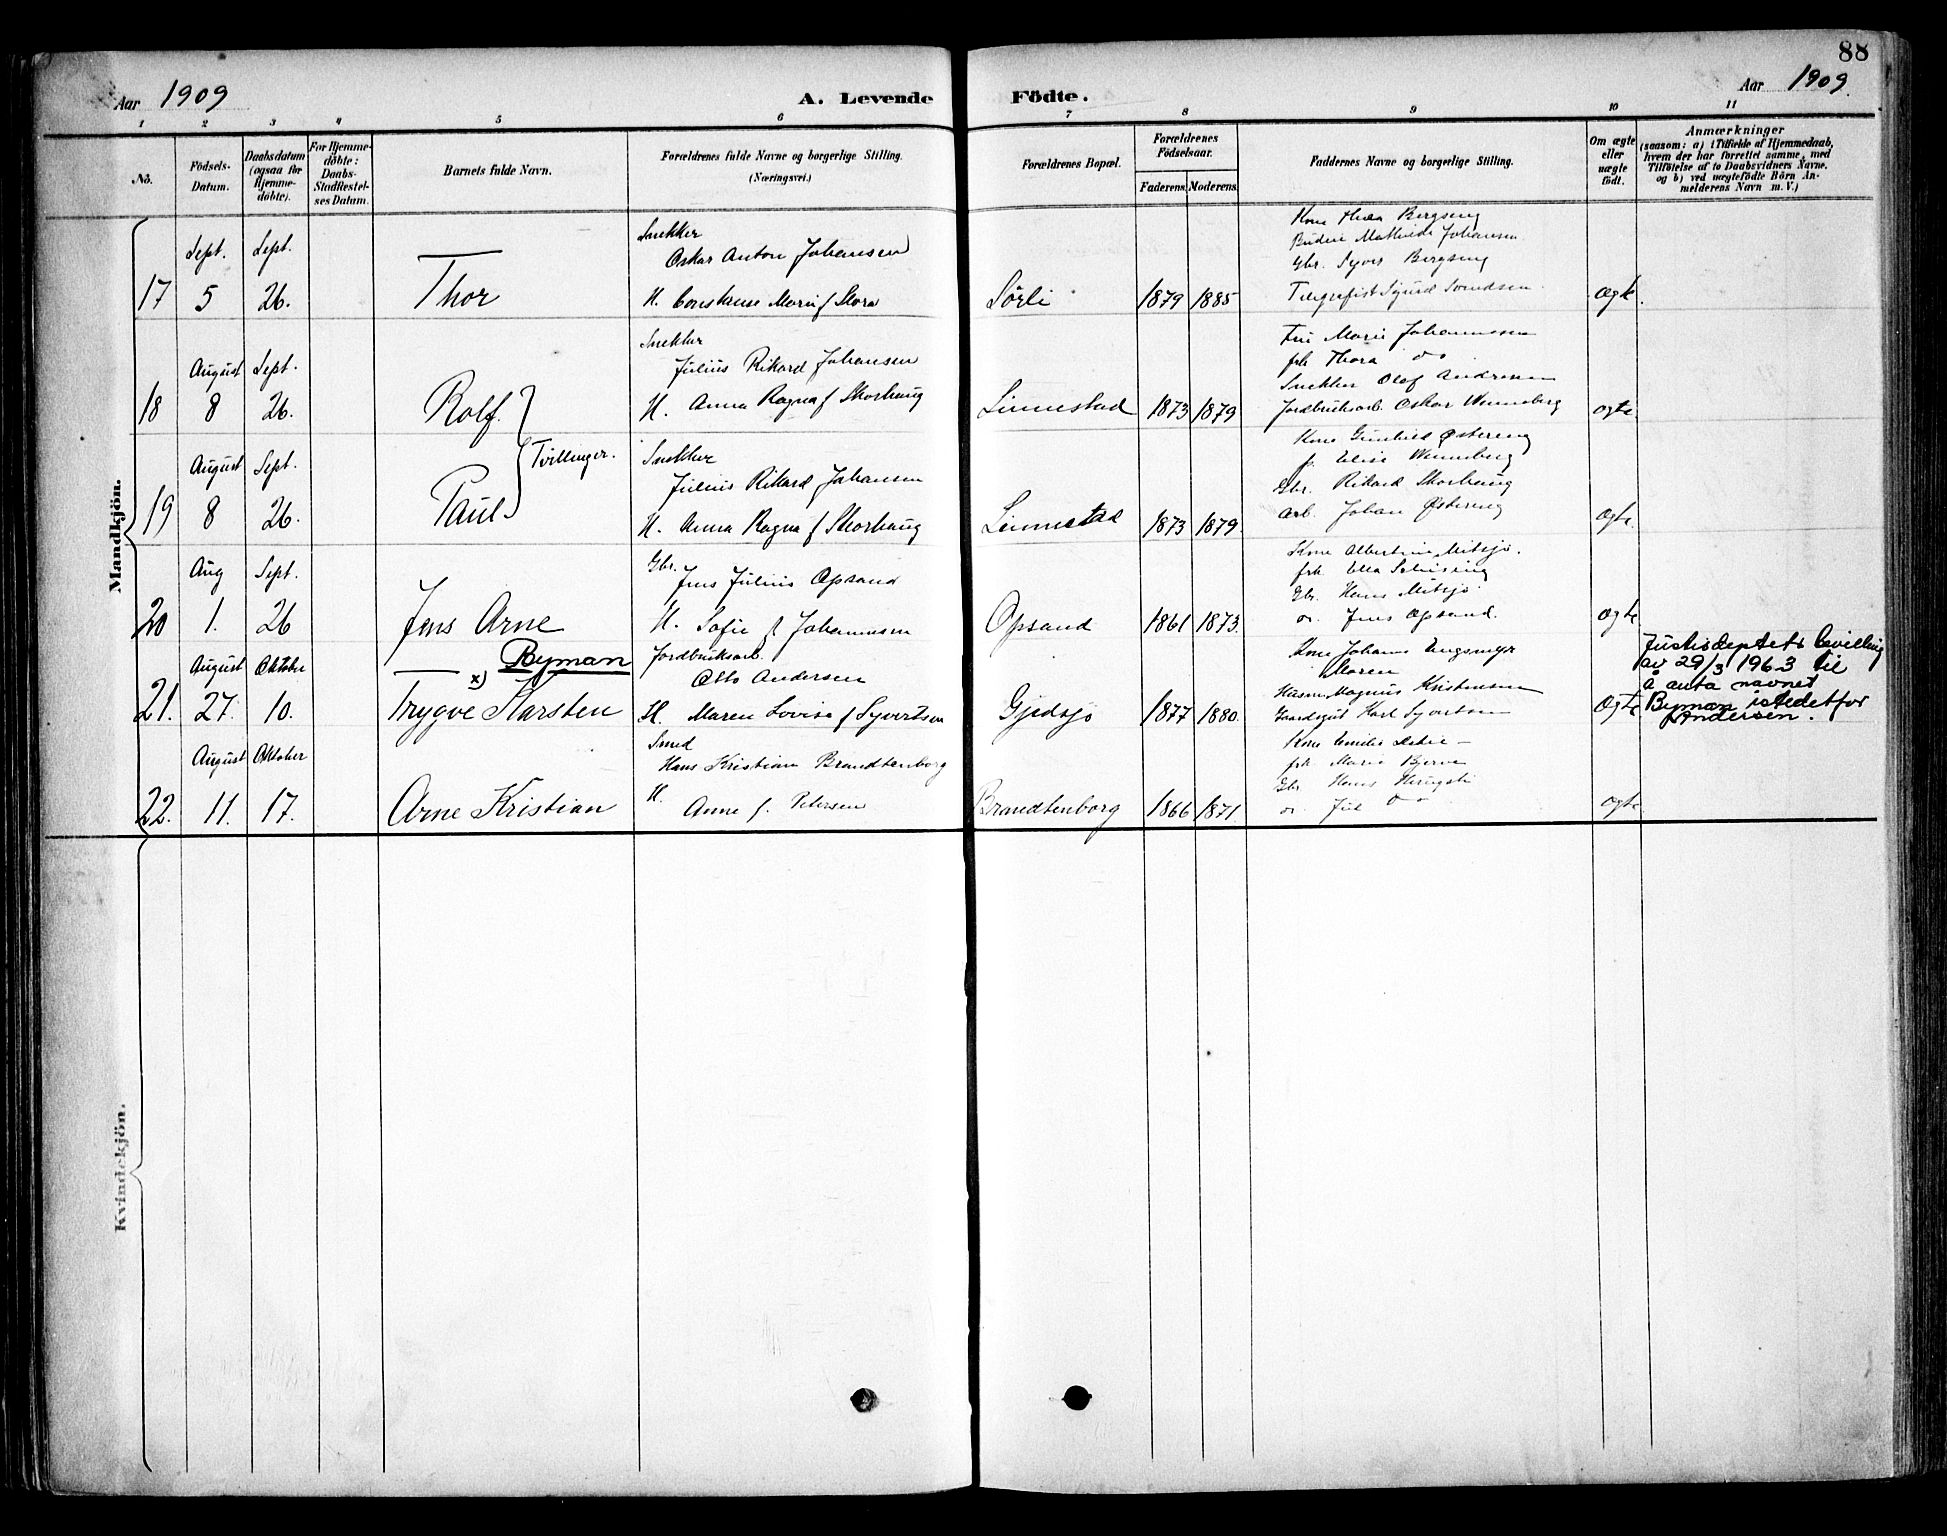 88
Aar 1909
A. Levende Födte.
Aar 1909.
1 2 3 4 5 6 7 8 9 10 11
No.
Födsels-
Datum.
Daabsdatum
(ogsaa for
Hjemme-
döbte).
For Hjemme-
döbte:
Daabs-
Stadfæstel-
ses Datum.
Barnets fulde Navn.
Forældrenes fulde Navne og borgerlige Stilling.
(Næringsvei.)
Forældrenes Bopæl.
Forældrenes
Födselsaar.
Faderens. Moderens.
Faddernes Navne og borgerlige Stilling.
Om ægte
eller
uægte
födt.
Anmærkninger
(saasom: a) i Tilfælde af Hjemmedaab,
hvem der har forrettet samme, med
Tilföielse af to Daabsvidners Navne,
og b) ved uægtefödte Börn An-
melderens Navn m. V.)
Mandkjön.
17
Sept.
5
Sept.
26.
Thor
Snekker
Oskar Anton Johansen
H. Constanse Marie f Skora
Sörli
1879 1885
Kone Thea Bergseng
Budeie Mathilde Johansen
Gbr. Syver Bergseng
Telegrafist Sigurd Svendsen
Ægte.
18
August
8
Sept.
26.
Rolf.
Tvillinger.
Snekker
Julius Rikard Johansen
H. Anna Ragna f Skorhaug
Linnestad
1873 1879
Fru Marie Johannessen
frk Thora do
Snekker Olof Andresen
Jordbruksarb. Oskar Wenneberg
ægte
19
August
8
Sept.
26.
Paul
Snekker
Julius Rikard Johansen
H. Anna Ragna f Skorhaug
Linnestad
1873 1879.
Kone Gunhild Østereng
p. Elise Wenneberg
Gbr. Rikard Skorhaug
Arb. Johan Østereng
Ægte
20
Aug
1.
Sept.
26
Jens Arne
Gbr.
Jens Julius Opsand
H. Sofie f Johannesen
Opsand
1861 1873.
Kone Albertine Mitsjö.
frk Ella
Gbr. Hans Mitsjö
do. Jens Opsand.
Ægte
21.
August
27.
Oktober
10.
Byman
x)
Trygve Karsten
Jordbruksarb.
Otto Andersen
H. Maren Lovise f Syvertsen
Gjedsjö
1877 1880.
Kone Johanne Engsmyr
Maren
Husm Magnus Kristensen
Gaardsgut Karl Syvertsen
Ægte
Justisdeptets bevilling
av 29/3 1963 til
å anta navnet
Byman istedetfor
Andersen.
22.
August
11.
Oktober
17.
Arne Kristian
Smed
Hans Kristian Brandtenborg
H. Anne f. Petersen
Brandtenborg
1866 1871.
Kone Emilie
frk Marie Bjerve
Gbr Hans
do. Jul do
ægte
Kvindekjön.